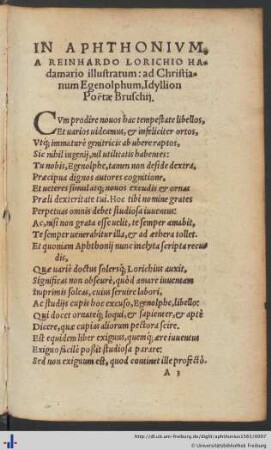 IN APHTHONIVM,
A REINHARDO LORICHIO HA-
damario illustratum: ad Christia-
num Egenolphum, Idyllion
Poëtæ Bruschij.
CVm prodire nouos hac tempestate libellos,
Et varios uideamus, & infeliciter ortos,
Vtq́; immaturè genitricis ab ubere raptos,
Sic nihil ingenij, nil utilitatis habentes:
Tu nobis, Egenolphe, tamen non deside dextra,
Præcipua dignos autores cognitione,
Et ueteres simul atq; nouos excudis & ornas
Præli dexteritate tui. Hoc tibi nomine grates
Perpetuas omnis debet studiosa iuuentus:
Ac, nisi non grata esse uelit, te semper amabit,
Te semper uenerabitur illa, & ad æthera tollet.
Et quoniam Aphthonij nunc inclyta scripta recu-
dis,
Quæ uariè doctus solersq́; Lorichius auxit,
Significas non obscurè, quòd amare iuuentam
Inprimis soleas, cuius seruire labori,
Ac studijs cupis hoc excuso, Egenolphe, libello:
Qui docet ornatéq; loqui, & sapienter, & aptè
Dicere, quæ cupias aliorum pectora scire.
Est equidem liber exiguus, quemq́; ære iuuentus
Exiguo facilè poßit studiosa parare:
Sed non exiguum est, quod continet ille profectò.
A 3
http://dl.ub.uni-freiburg.de/diglit/aphthonius1561/0007
© Universitätsbibliothek Freiburg